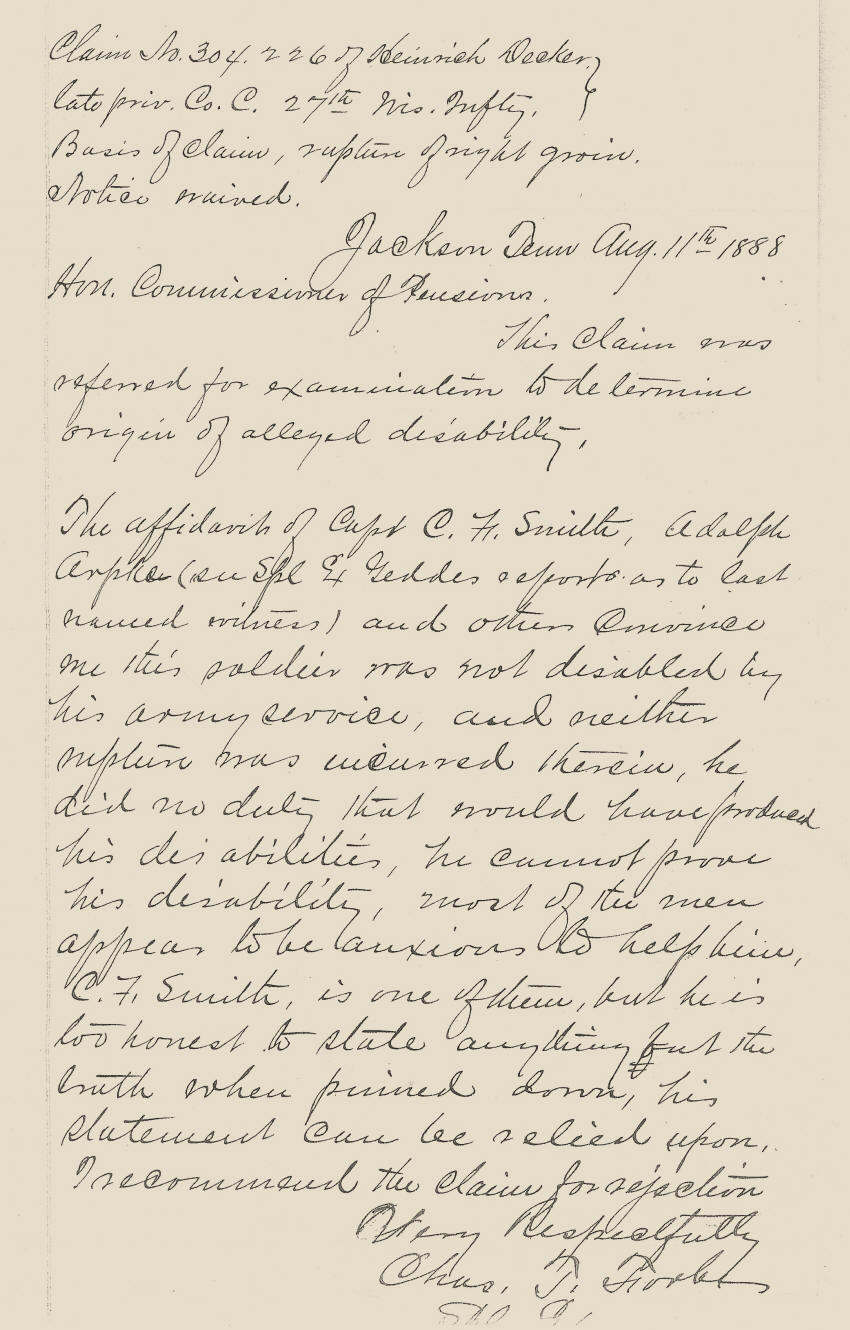 Claim No. 304.226 of Heinrich Decker,
late priv. Co. C. 27th Wis. Infty.
Basis of claim, rupture of right groin.
Notice waived.
Jackson Tenn Aug. 11th 1888
Hon. Commissioner of Pensions.
This claim was
referred for examination to determine
origin of alleged disability.
The affidavits of Capt C. F. Smith, Adolph
Arpke (see Spl Ex Geddes reports as to last
named witness) and others convince
me this soldier was not disabled by
his army service, and neither
rupture was incurred therein, he
did no duty that would have produced
his disabilities, he cannot prove
his disability, most of the men
appear to be anxious to help him,
C. F. Smith, is one of them, but he is
too honest to state anything but the
truth when pinned down, his
statement can be relied upon.
I recommend the claim for rejection
Very Respectfully
Chas. T. Forbes